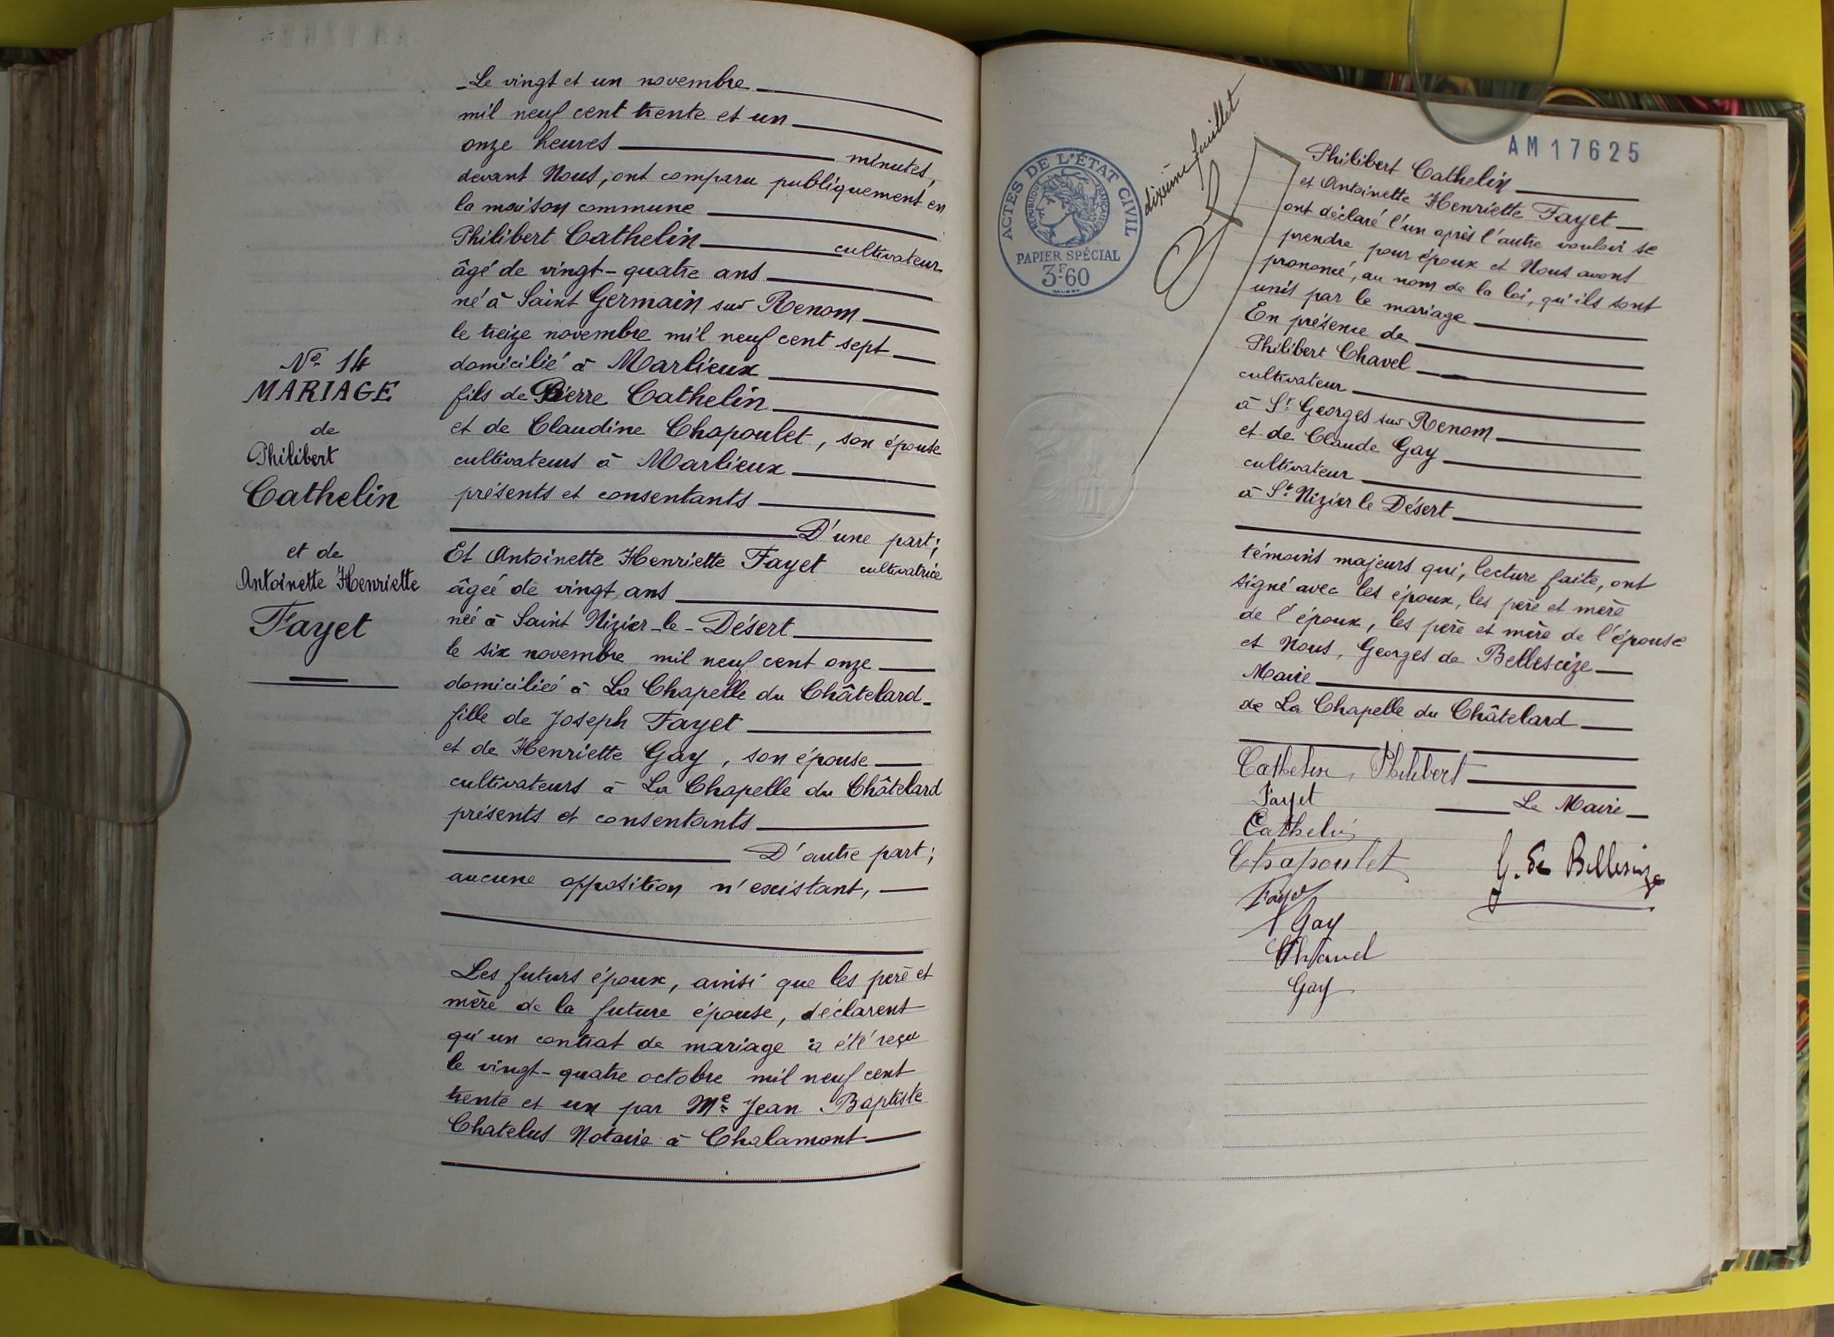 Nº 14
MARIAGE
de
Philibert
Cathelin
et de
Antoinette Henriette
Fayet
Le vingt et un novembre
mil neuf cent trente et un
onze heures minutes,
devant Nous, ont comparu publiquement en
la maison commune
Philibert Cathelin cultivateur
âgé de vingt-quatre ans
né à Saint Germain sur Renom
le treize novembre mil neuf cent sept
domicilié à Marlieux
fils de Pierre Cathelin
et de Claudine Chapoulet, son épouse
cultivateurs à Marlieux
présents et consentants
D'une part;
Et Antoinette Henriette Fayet cultivatrice
âgée de vingt ans
née à Saint Nizier-le-Désert
le six novembre mil neuf cent onze
domiciliée à La Chapelle du Châtelard
fille de Joseph Fayet
et de Henriette Gay, son épouse
cultivateurs à La Chapelle du Châtelard
présents et consentants
D'autre part;
aucune opposition n'existant,
Les futurs époux, ainsi que les père et
mère de la future épouse, déclarent
qu'un contrat de mariage a été reçu
le vingt-quatre octobre mil neuf cent
trente et un par Me Jean Baptiste
Chatelus Notaire à Chalamont
dixième feuillet
ACTES DE L'ÉTAT CIVIL
RÉPUBLIQUE FRANÇAISE
PAPIER SPÉCIAL
3F60
AM17625
Philibert Cathelin
et Antoinette Henriette Fayet
ont déclaré l'un après l'autre vouloir se
prendre pour époux et Nous avons
prononcé, au nom de la loi, qu'ils sont
unis par le mariage
En présence de
Philibert Chavel
cultivateur
à St Georges sur Renom
et de Claude Gay
cultivateur
à St Nizier le Désert
témoins majeurs qui, lecture faite, ont
signé avec les époux, les père et mère
de l'époux, les père et mère de l'épouse
et Nous, Georges de Bellescize
Maire
de La Chapelle du Châtelard
Cathelin Philibert
Fayet Le Maire
Cathelin
Chapoulet G. de Bellescize
Fayet
Gay
Chavel
Gay